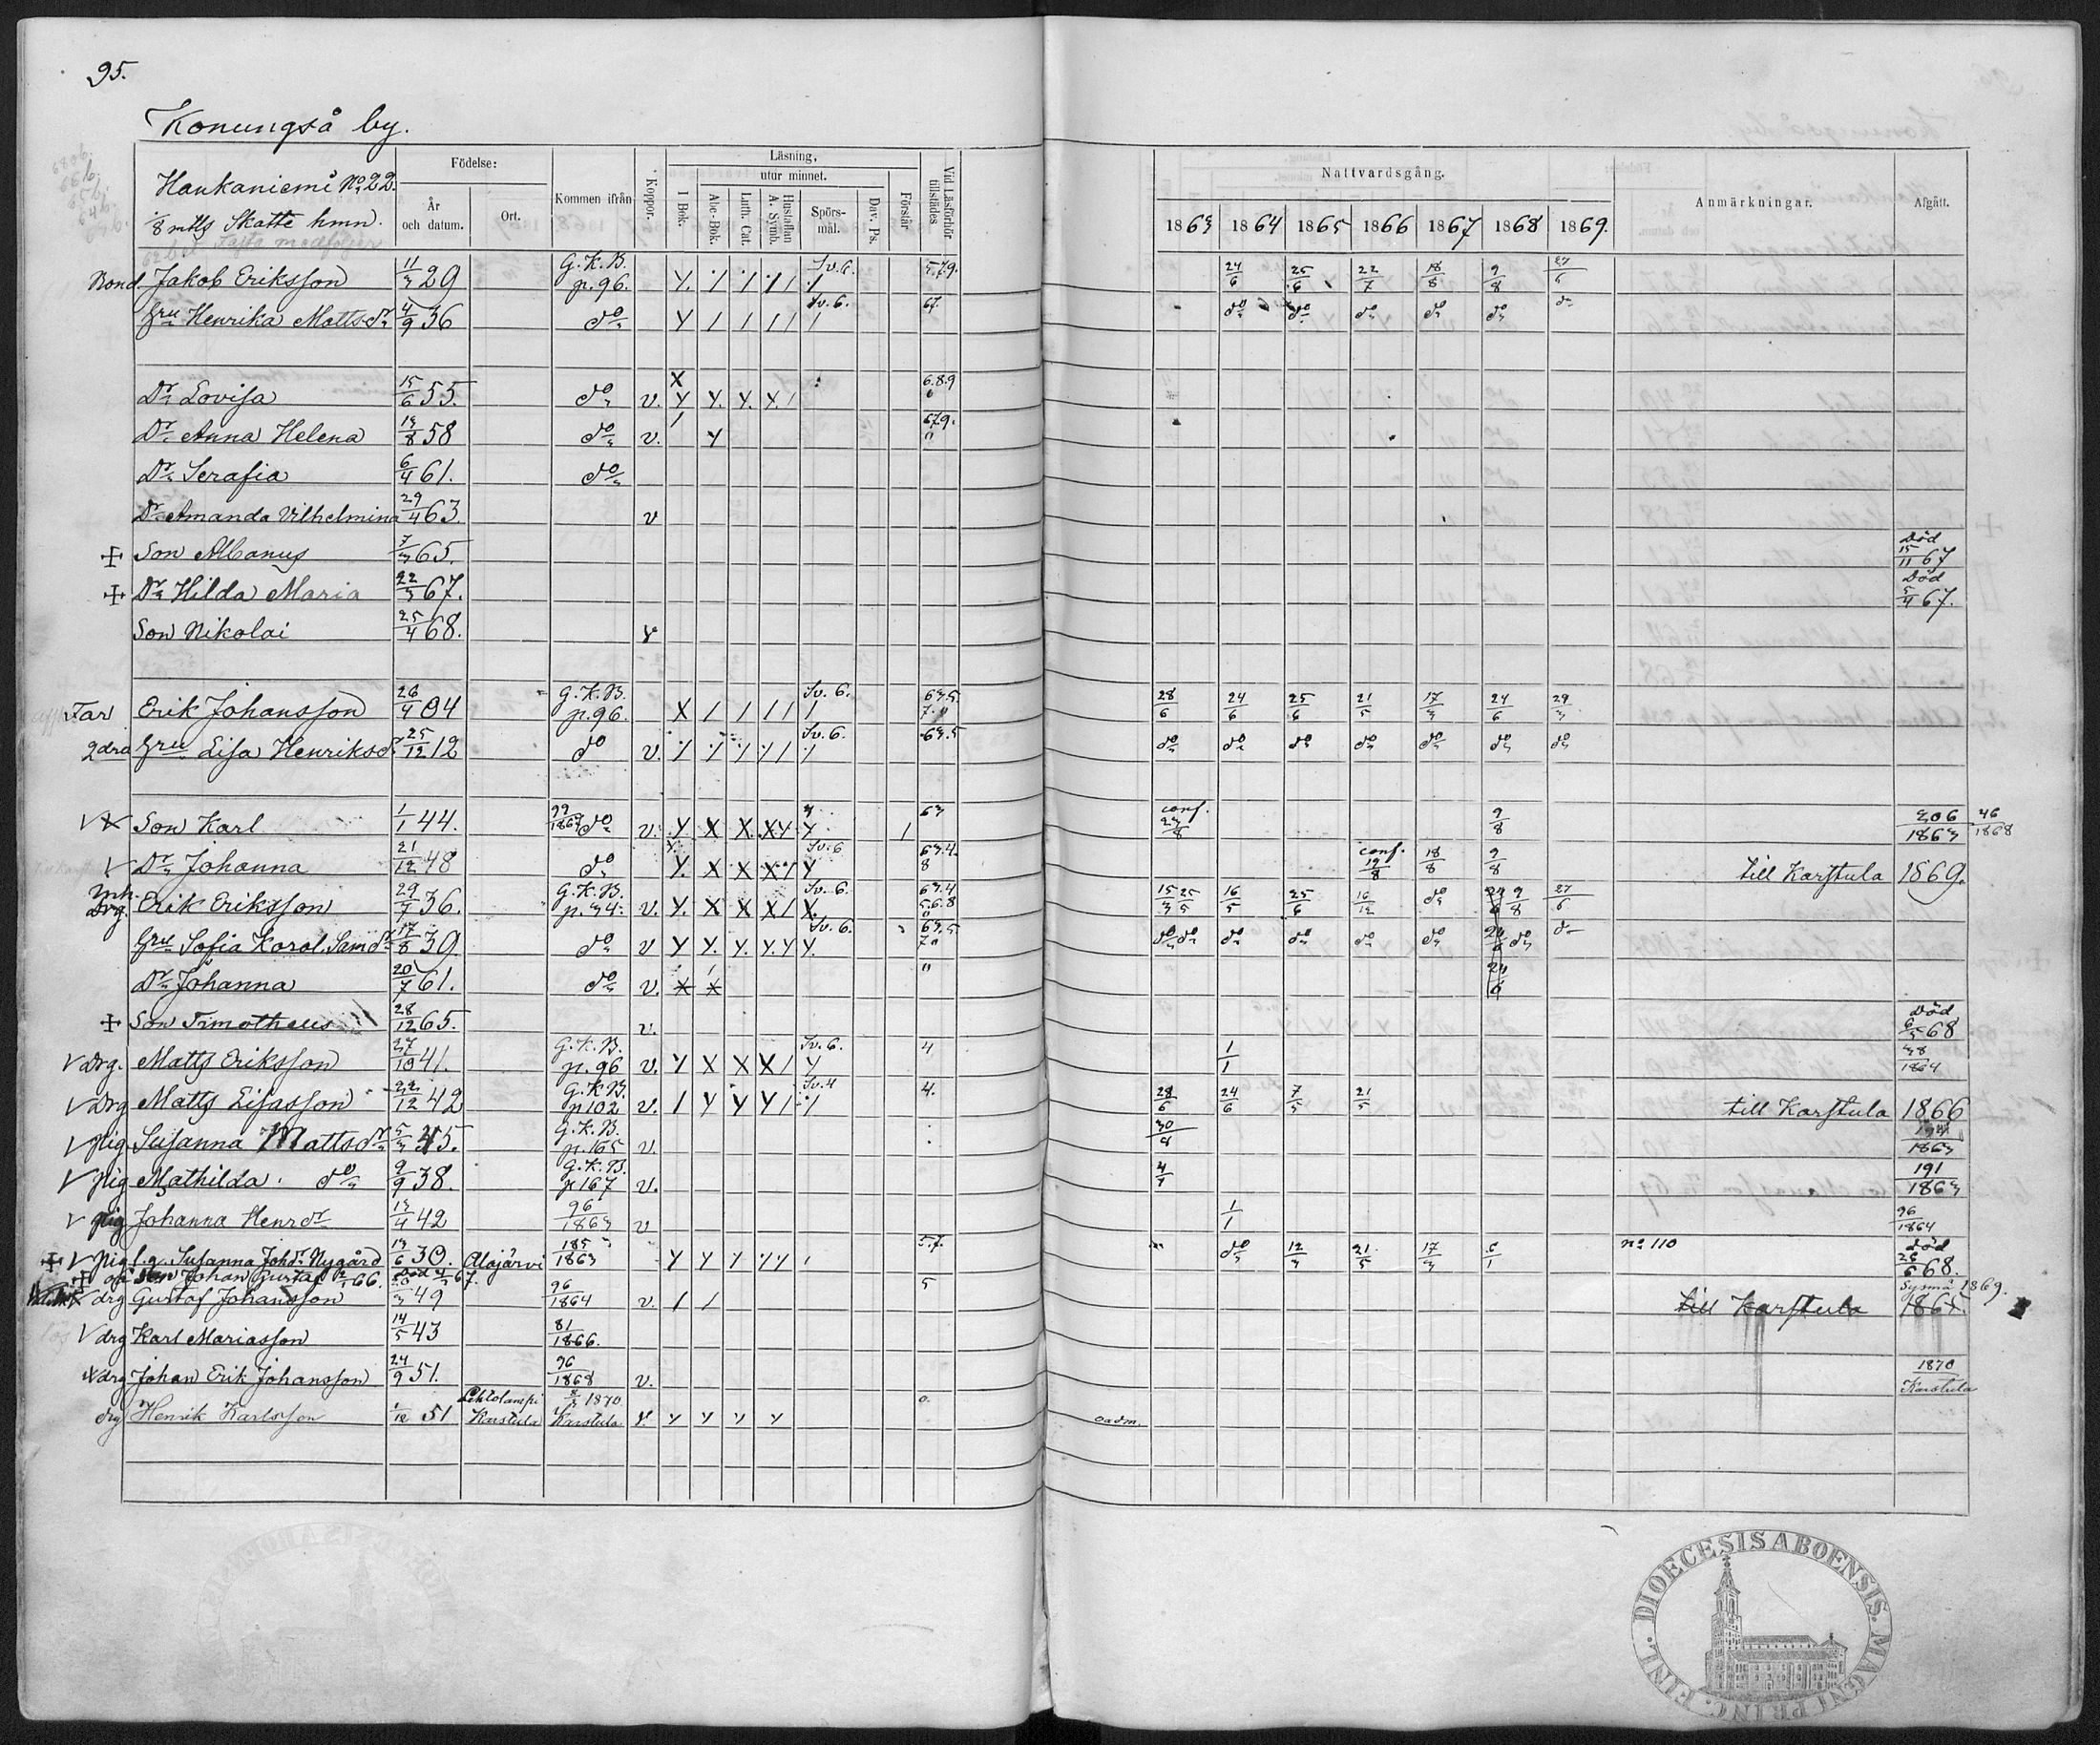 95.
Konungså by.
Haukaniemi No 22.
1/8 mtls Skatte hmn.
Födelse:
År och datum.
Ort.
Kommen ifrån
Koppor.
Läsning,
utur minnet.
I Bok.
Abc-Bok.
Luth. Cat.
Hustaflan A. Symb.
Spörs-mål.
Dav. Ps.
Förstår
Vid Läsförhör tillstädes
Nattvardsgång.
1863 1864 1865 1866 1867 1868 1869.
Anmärkningar.
Afgått.
Bond. Jakob Eriksson 11/3 29 G.K.B. p. 96. Sv. 6. 5.7.9. 24/6 25/6 22/7 18/8 9/8 27/6
Hru Henrika Mattsdr 4/9 36 do Sv. 6. 67. do do do do do do
Dr Lovisa 15/6 55. do v. 6.8.9
Dr Anna Helena 13/8 58 do v. 679.
Dr Serafia 6/4 61. do
Dr Amanda Vilhelmina 29/4 63. v
Son Albanus 7/3 65. Död 15/11 67
Dr Hilda Maria 22/3 67. Död 5/4 67.
Son Nikolai 25/4 68.
Far Erik Johansson 26/4 04 G.K.B. p. 96. Sv. 6. 63.5. 7. 28/6 24/6 25/6 21/5 17/3 24/6 29/3
2dra Hru Lisa Henriksdr 25/12 12 do v. Sv. 6. 63.5 do do do do do do do
Son Karl 1/1 44. 99/1863 do v. 63 conf. 23/8 9/8 206/1863 46/1868
Dr Johanna 21/12 48 do Sv. 6 63.4. 8 conf. 19/8 18/8 9/8 till Karstula 1869.
Inh. Drg. Erik Eriksson 29/7 36. G.K.B. p. 34. v. Sv. 6. 63.4 5.6.8 15/3 25/5 16/5 25/6 16/12 do 9/8 27/6
Hru Sofia Karol. Samdr 17/8 39. do v Sv. 6. 63.5 7 do do do do do do do do
Dr Johanna 20/7 61. do v.
Son Timotheus 28/12 65. v. Död 6/5 68
drg. Matts Eriksson 27/10 41. G.K.B. p. 96 v. Sv. 6. 4 1/1 38/1864
drg Matts Lisasson 22/12 42 G.K.B. p 102 v. Sv. 4 4. 28/6 24/6 7/5 21/5 till Karstula 1866
pig. Susanna Mattsdr 5/3 45. G.K.B. p. 165 v. 30/8 1863
pig Mathilda do 9/9 38. G.K.B. p 167 v. 4/1 191/1863
pig Johanna Henrdr 13/4 42 96/1863 v 1/1 96/1864
pig f.g. Susanna Johdr Nygård 13/6 30. Alajärvi 185/1863 5.7. do 12/3 21/5 17/3 6/1 no 110 död 26/6 68.
Son Johan Gustaf 66. död 67.
drg Gustaf Johansson 49 96/1864 v. 5 till Karstula Sysmä 1869.
drg Karl Mariasson 14/5 43 81/1866.
drg Johan Erik Johansson 24/9 51. 96/1868 v. 1870 Karstula
drg Henrik Karlsson 1/12 51 Lehtolampi Karstula 8/3 1870 Karstula v. 0. oadm.
FINL. DIOECESIS ABOENSIS. MAGNI PRINC.